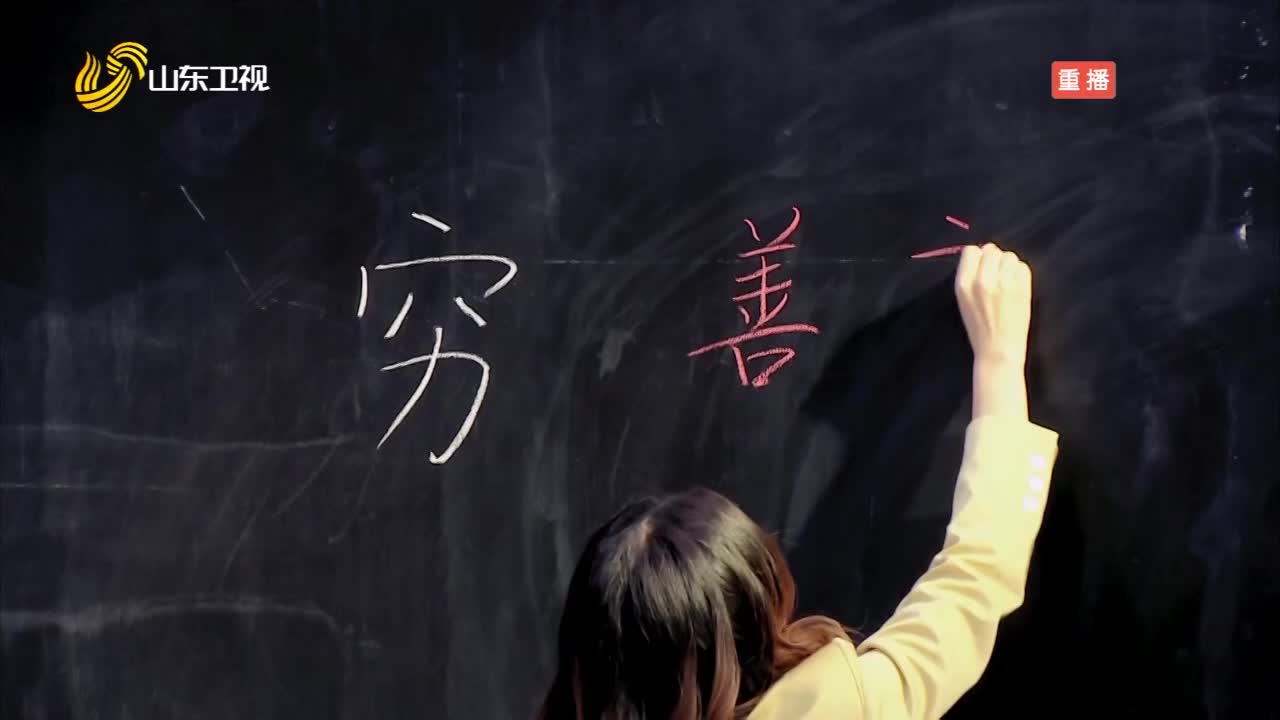 山东卫视
重播
穷 善